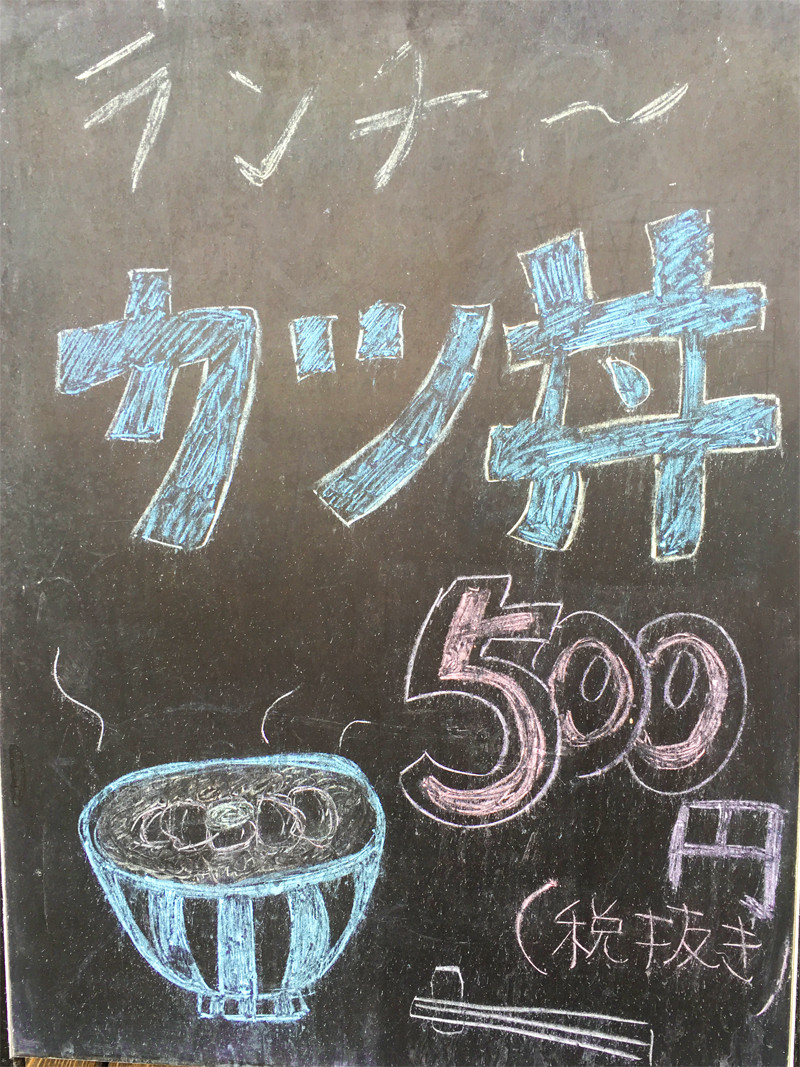 ランチ〜
カツ丼
500
円
(税抜き)